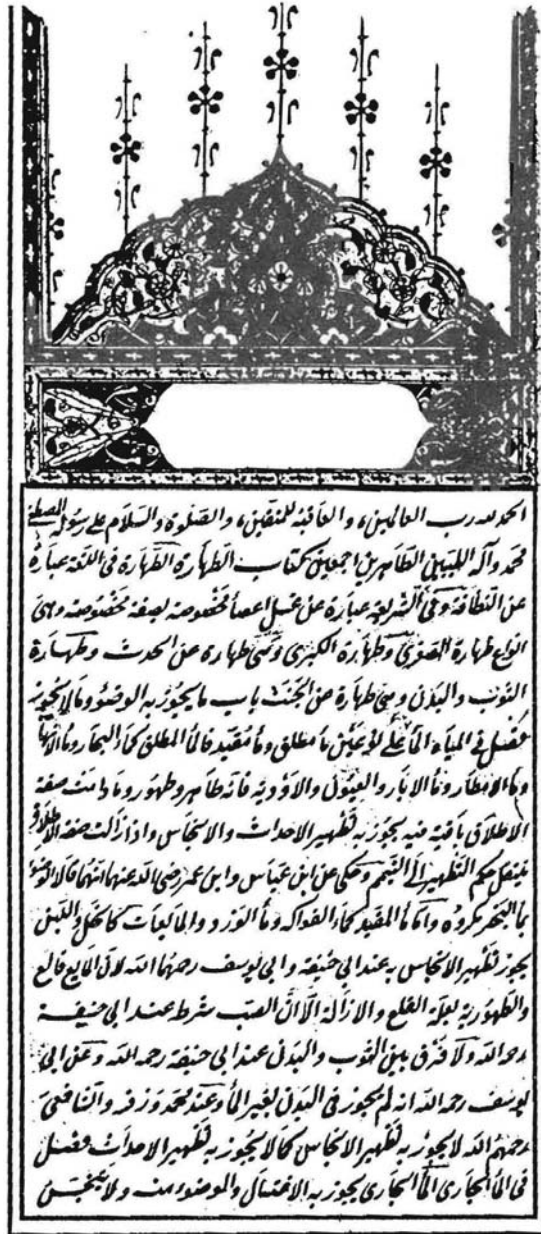 الحمد لله رب العالمين، والعاقبة للمتقين، والصلوة والسلام على رسوله المصطفى
محمد وآله الطيبين الطاهرين اجمعين كتاب الطهارة الطهارة فى اللغة عبارة
عن النظافة وفى الشريعة عبارة عن غسل اعضأ مخصوصة بصفة مخصوصة وهى
انواع طهارة الصغرى وطهارة الكبرى وتسمى طهارة عن الحدث وطهارة
الثوب والبدن وهى طهارة عن الخبث باب ما يجوز به الوضوء وما لا يجوز به
فصل فى المياه المأ على نوعين مأ مطلق ومأ مقيد فالمأ المطلق كمأ البحار ومأ الانهار
ومأ الامطار ومأ الابار والعيون والاودية فانه طاهر وطهور وما دامت صفة
الاطلاق باقية فيه يجوز به تطهير الاحداث والانجاس واذا زالت صفة الاطلاق
ينتقل حكم التطهير الى التيمم وحكى عن ابن عباس وابن عمر رضى الله عنهما انهما قالا الوضوء
بمأ البحر مكروه واما المأ المقيد كمأ الفواكه ومأ الورد والمايعات كالخل واللبن
يجوز تطهير الانجاس به عند ابى حنيفة وابى يوسف رحمهما الله لان المايع قالع
والطهورية بعلة القلع والازالة الا ان الصب شرط عند ابى حنيفة
رحمه الله ولا فرق بين الثوب والبدن عند ابى حنيفة رحمه الله وعن ابى
يوسف رحمه الله انه لم يجوز فى البدن بغير المأ وعند محمد وزفر والشافعى
رحمهم الله لا يجوز به تطهير الانجاس كما لا يجوز به تطهير الاحداث فصل
فى المأ الجارى المأ الجارى يجوز به الاغتسال والوضوء منه ولا يتنجس